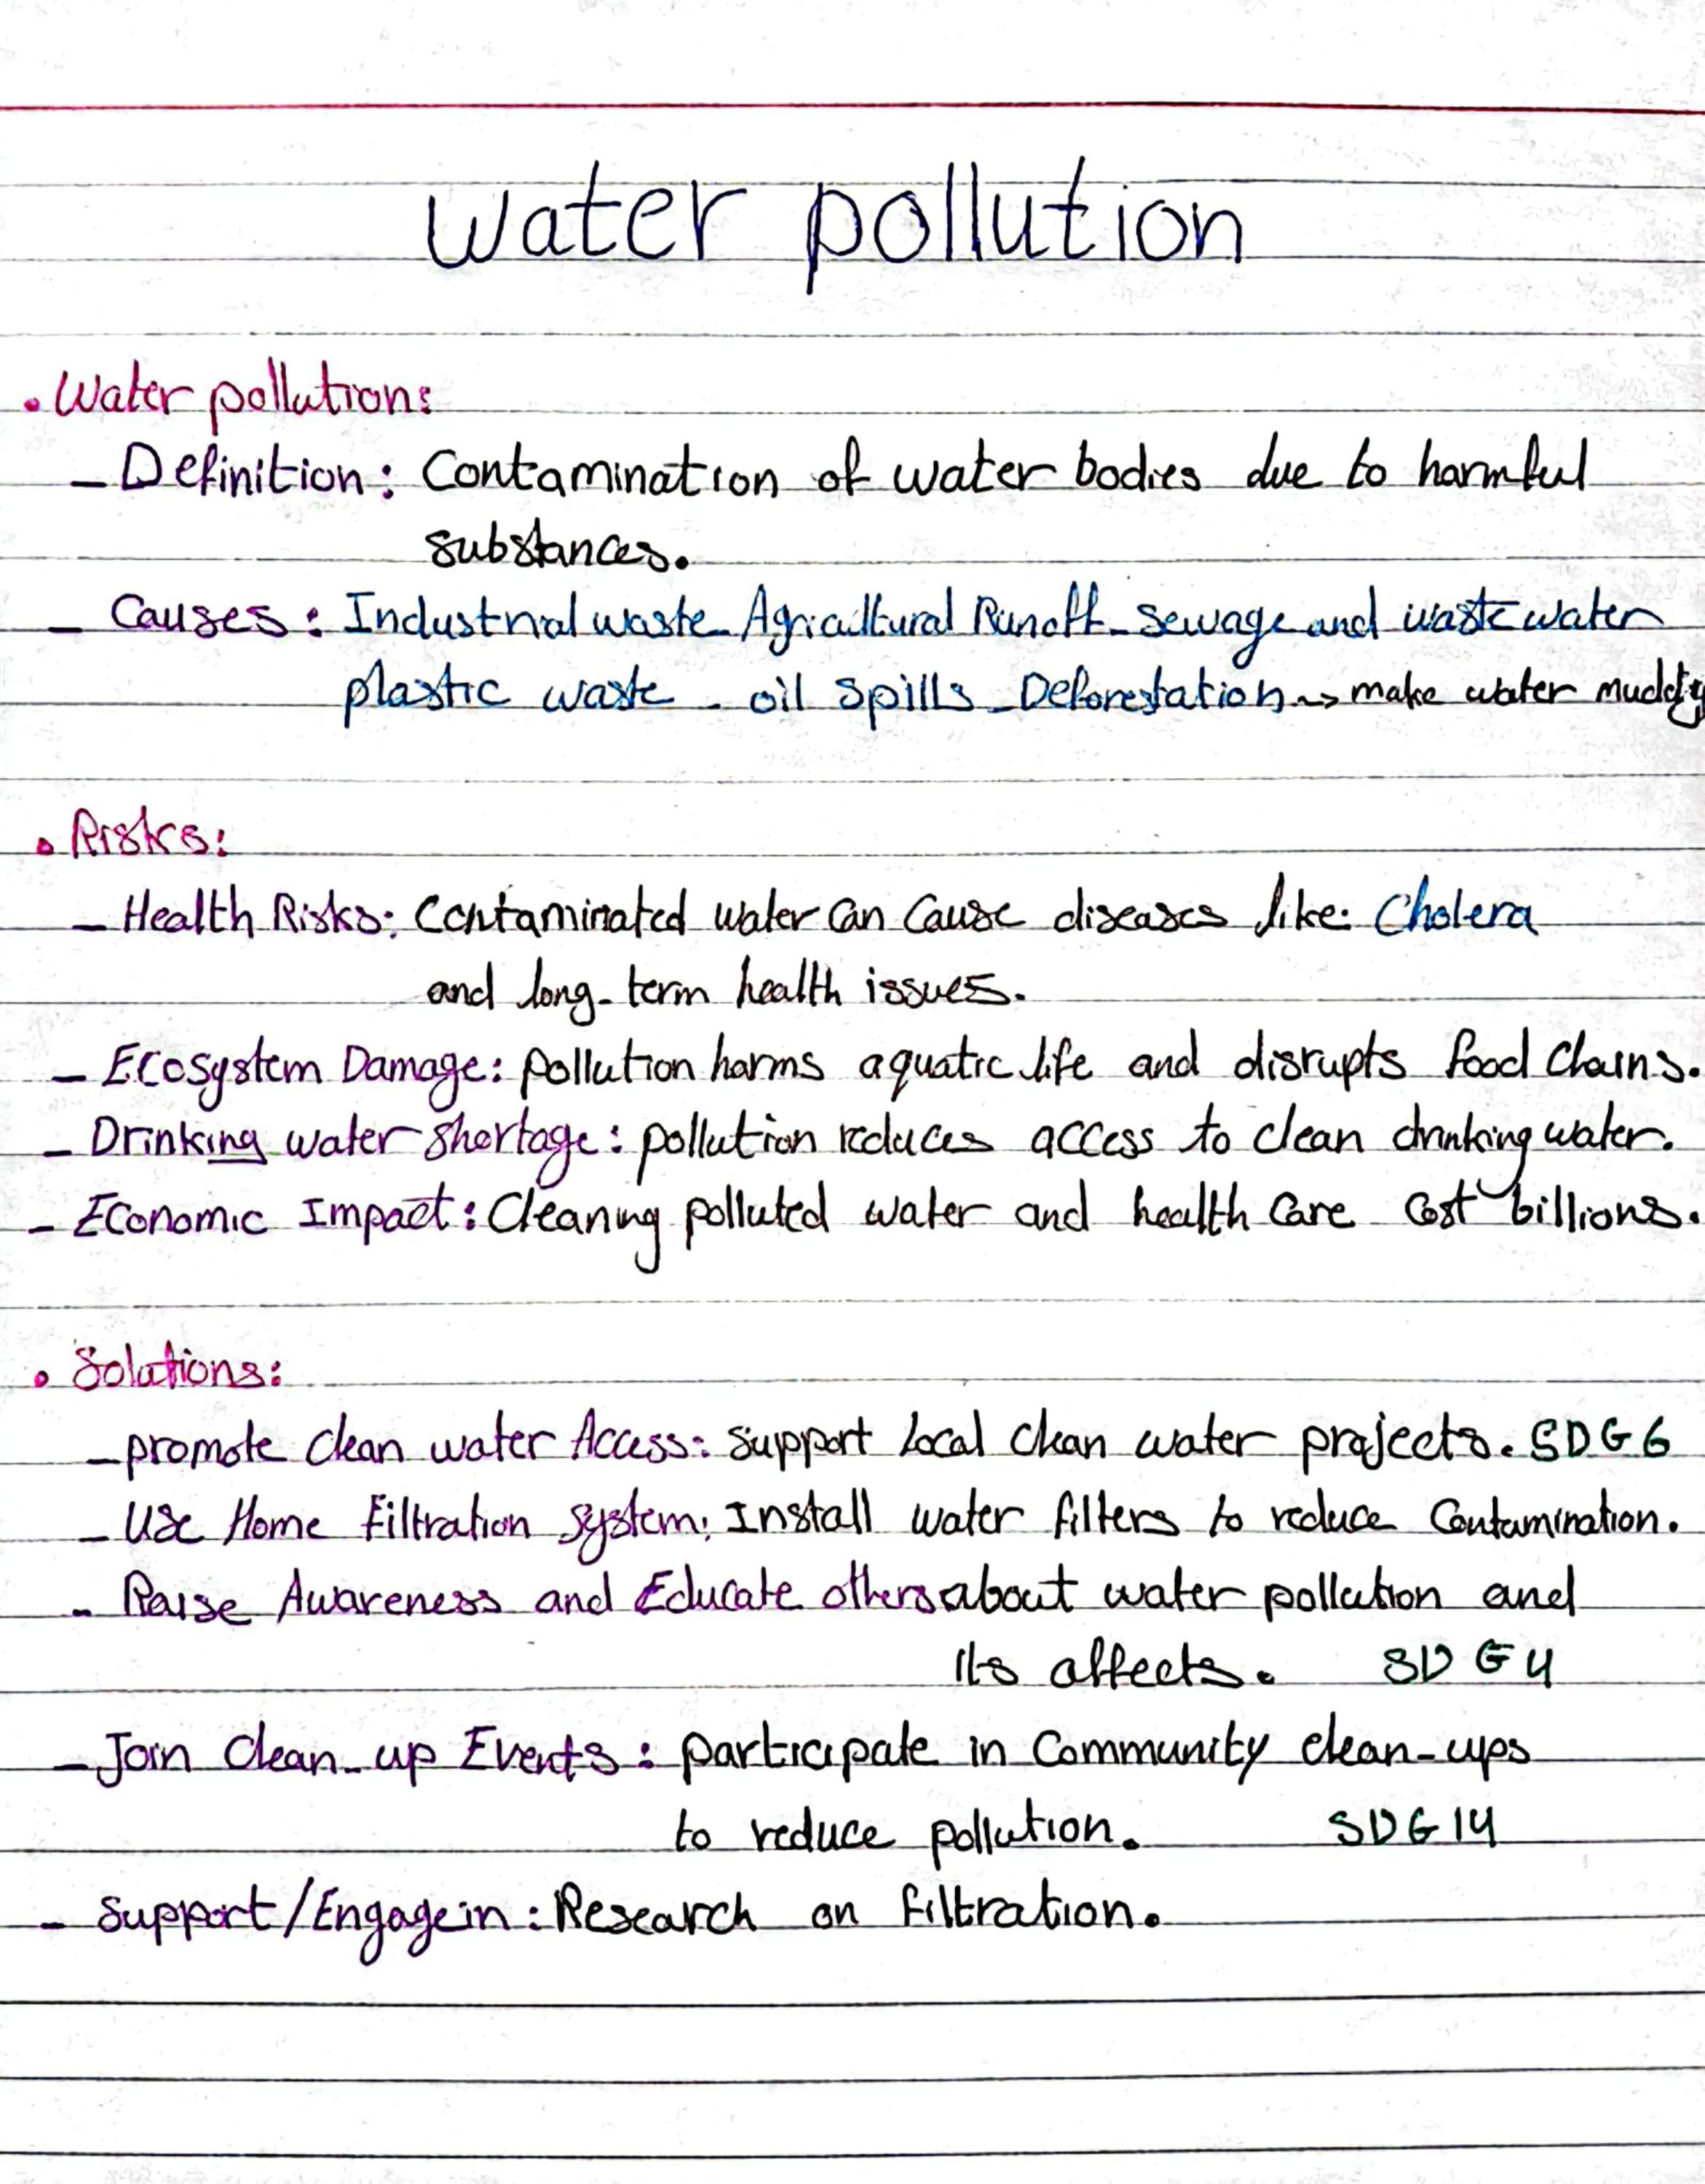 Water pollution
• Water pollution:
- Definition: Contamination of water bodies due to harmful
substances.
- Causes: Industrial waste - Agricultural Runoff - sewage and wastewater
plastic waste - oil spills - Deforestation → make water muddy
• Risks:
- Health Risks: Contaminated water can cause diseases like: Cholera
and long-term health issues.
- Ecosystem Damage: pollution harms aquatic life and disrupts food chains.
- Drinking water shortage: pollution reduces access to clean drinking water.
- Economic Impact: Cleaning polluted water and health care cost billions.
• Solutions:
- promote clean water Access: support local clean water projects. SDG6
- Use Home Filtration system: Install water filters to reduce Contamination.
- Raise Awareness and Educate others about water pollution and
its affects. SDG4
- Join Clean-up Events: participate in Community clean-ups
to reduce pollution. SDG14
- Support/Engage in: Research on filtration.